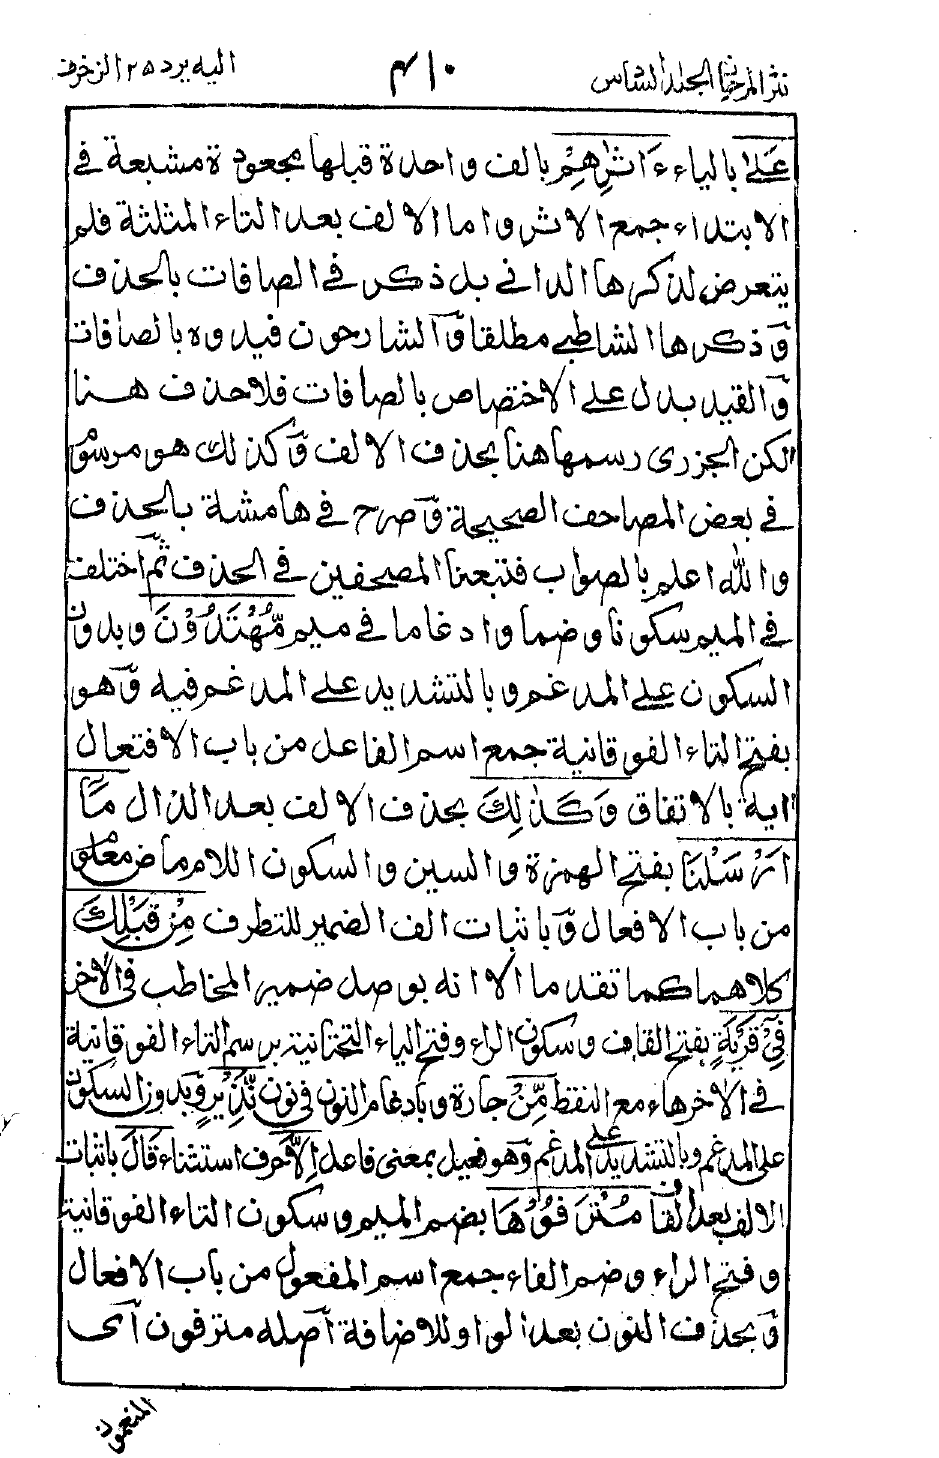 نثر المرجان الجلد السادس ٤١٠ اليه يرد ٢٥ الزخرف
عَلىٰ بالياء ءَاثٰرِهِمْ بالف واحدة قبلها مجعودة مشبعة في
الابتداء جمع الاثر واما الالف بعد الثاء المثلثة فلم
يتعرض لذكرها الداني بل ذكر في الصافات بالحذف
وذكرها الشاطبي مطلقا والشارحون قيدوه بالصافات
والقيد يدل على الاختصاص بالصافات فلا حذف هنا
لكن الجزري رسمها هنا بحذف الالف وكذلك هو مرسوم
في بعض المصاحف الصحيحة وصرح في هامشة بالحذف
والله اعلم بالصواب فتبعنا المصحفين في الحذف ثم اختلف
في الميم سكونا وضما وادغاما في ميم مُّهْتَدُوْنَ وبدون
السكون على المدغم وبالتشديد على المدغم فيه وهو
بفتح التاء الفوقانية جمع اسم الفاعل من باب الافتعال
اية بالاتفاق وَكَذٰلِكَ بحذف الالف بعد الذال مَا
اَرْسَلْنَا بفتح الهمزة والسين والسكون اللام ماض معلوم
من باب الافعال وباثبات الف الضمير للتطرف مِنْ قَبْلِكَ
كلاهما كما تقدما الا انه بوصل ضمير المخاطب في الاخر
فِيْ قَرْيَةٍ بفتح القاف وسكون الراء وفتح الياء التحتانية برسم التاء الفوقانية
في الاخر هاء مع النقط مِّنْ جارة وبادغام النون في نون نَّذِيْرٍ وبدون السكون
على المدغم وبالتشديد على المدغم وهو فعيل بمعنى فاعل اِلَّا حرف استثناء قَالَ باثبات
الالف بعد القاف مُتْرَفُوْهَا بضم الميم وسكون التاء الفوقانية
وفتح الراء وضم الفاء جمع اسم المفعول من باب الافعال
وبحذف النون بعد الواو للاضافة اصله مترفون اى
المنعمون